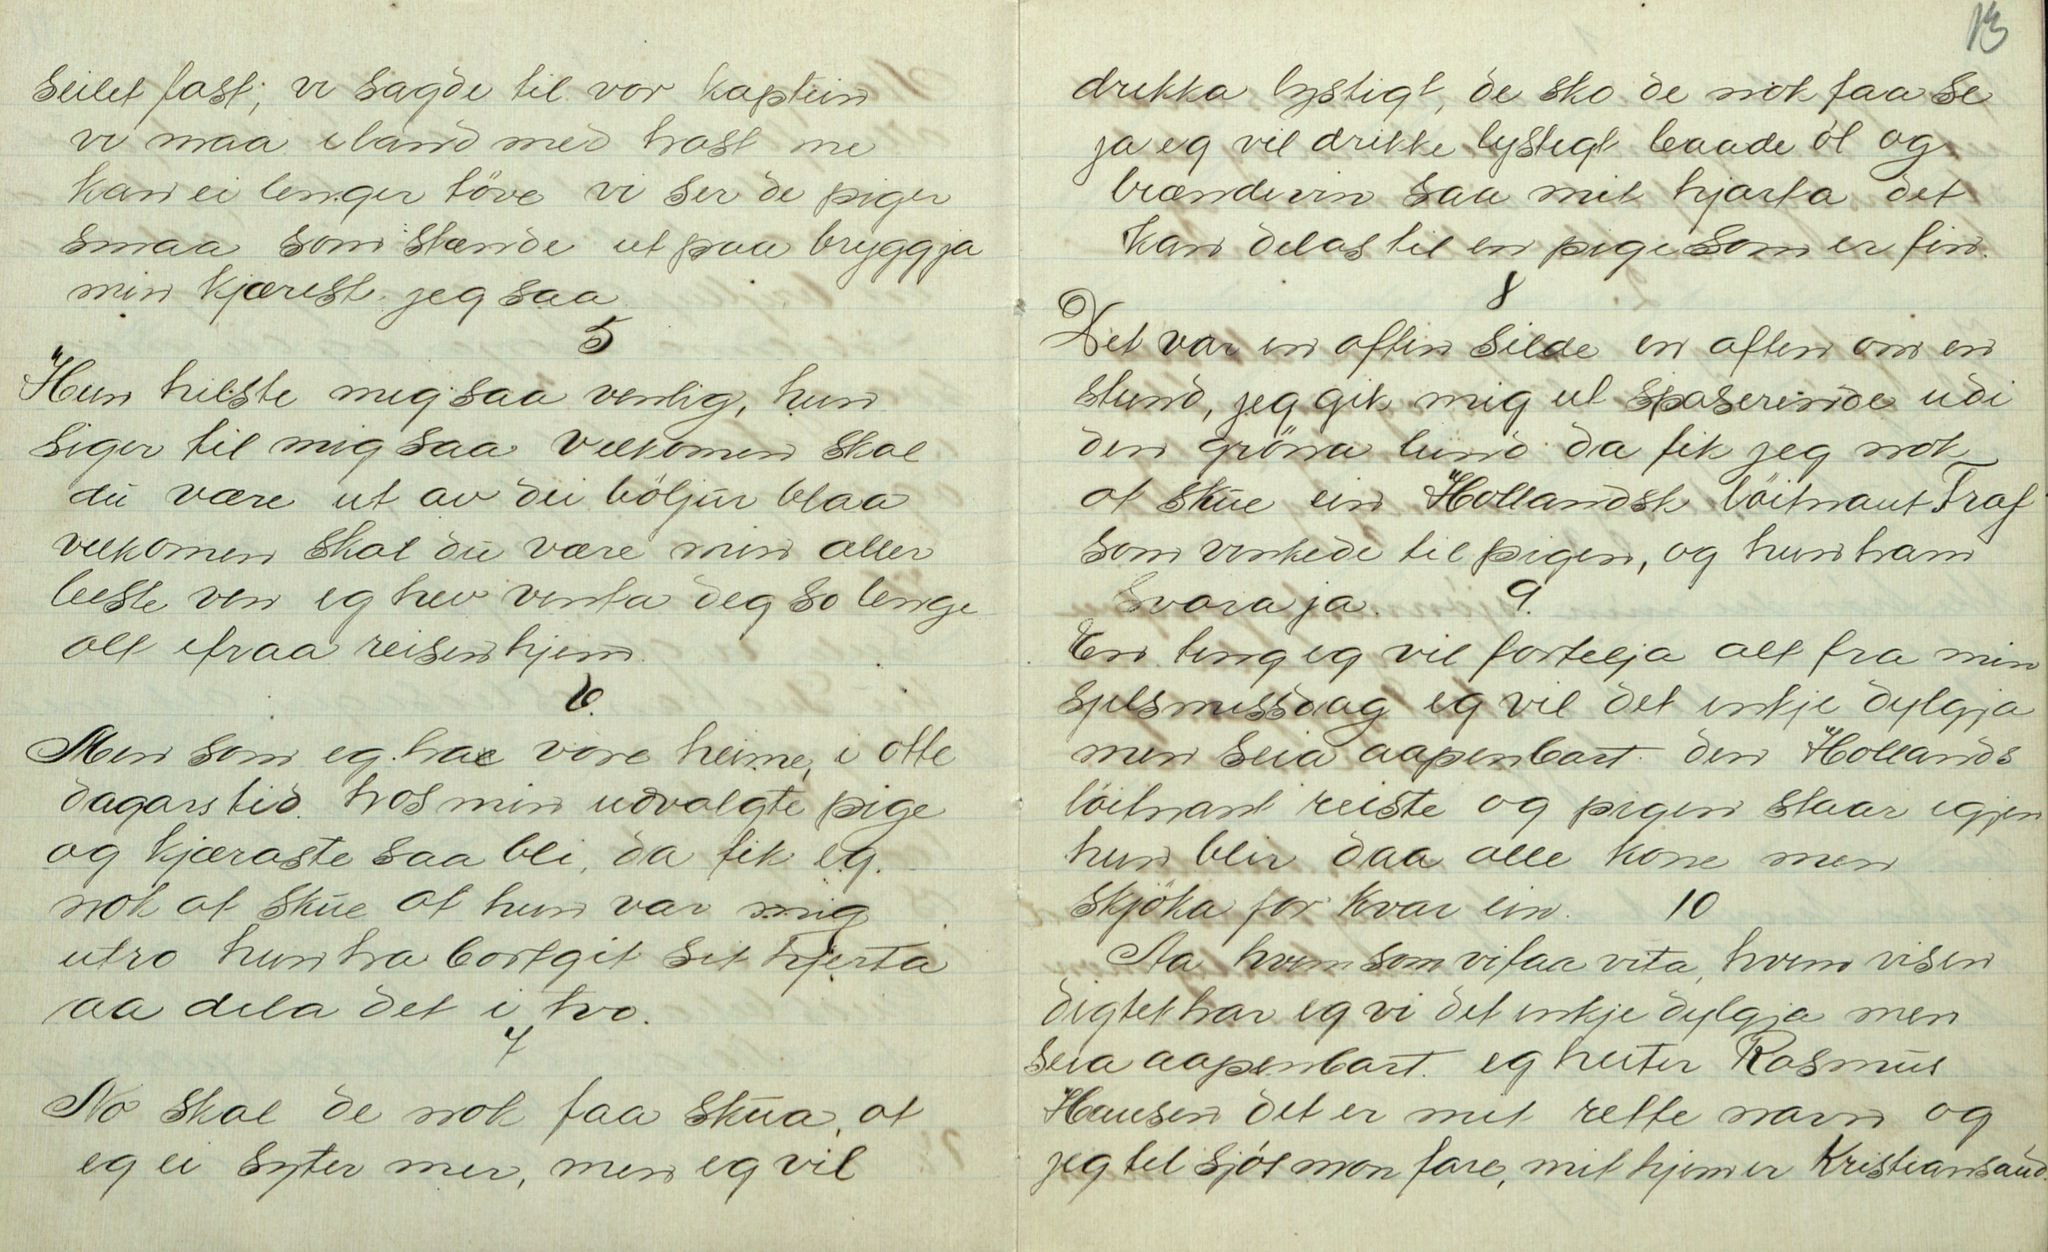 seilet fast; vi sagde til vor kaptein
vi maa i land med hast me
kan ei lenger töve vi ser de piger
smaa som stænde ut paa bryggja
min kjærest jeg saa
5
Hun hilste mig saa venlig, hun
siger til mig saa velkomen skal
du være ut av dei böljur blaa
velkomen skal du være min aller
beste ven eg hev venta deg so lenge
alt ifraa reisen hjem.
6.
Men som eg hae vore heime, i otte
dagars tid. hos min udvalgte pige
og kjæraste saa bli, da fik eg.
nok at skue at hun var mig
utro hun ha bortgit sit hjerta
aa dela det i tvo.
7
No skal de nok faa skua, at
eg ei syter mer, men eg vil
13
drikka lystigt, de sko de nok faa se
ja eg vil drikke lystigt baade öl og
brændevin saa mit hjarta det
kan delas til en pige som er fin.
8
Det var en aften silde en aften om en
stund, jeg gik mig ut spaserende udi
den gröna lund da fik jeg nok
at skue ein Hollandsk löitnant Traf
som vinkede til pigen, og hun ham
svara ja. 9.
En ting eg vil fortelja alt fra min
sjelsmissdag eg vil det inkje dylgja
men seia aapenbart den Hollands
löitnant reiste og pigen staar igjen
hun blir daa alle kone men
skjöka for kvar ein. 10
Aa hvem som vi faa vita, hvem visen
digtet har eg vi det inkje dylgja men
seia aapenbart. eg heiter Rasmus
Hansen det er mit rette navn og
jeg til sjös mon fare, mit hjem er Kristiansand.